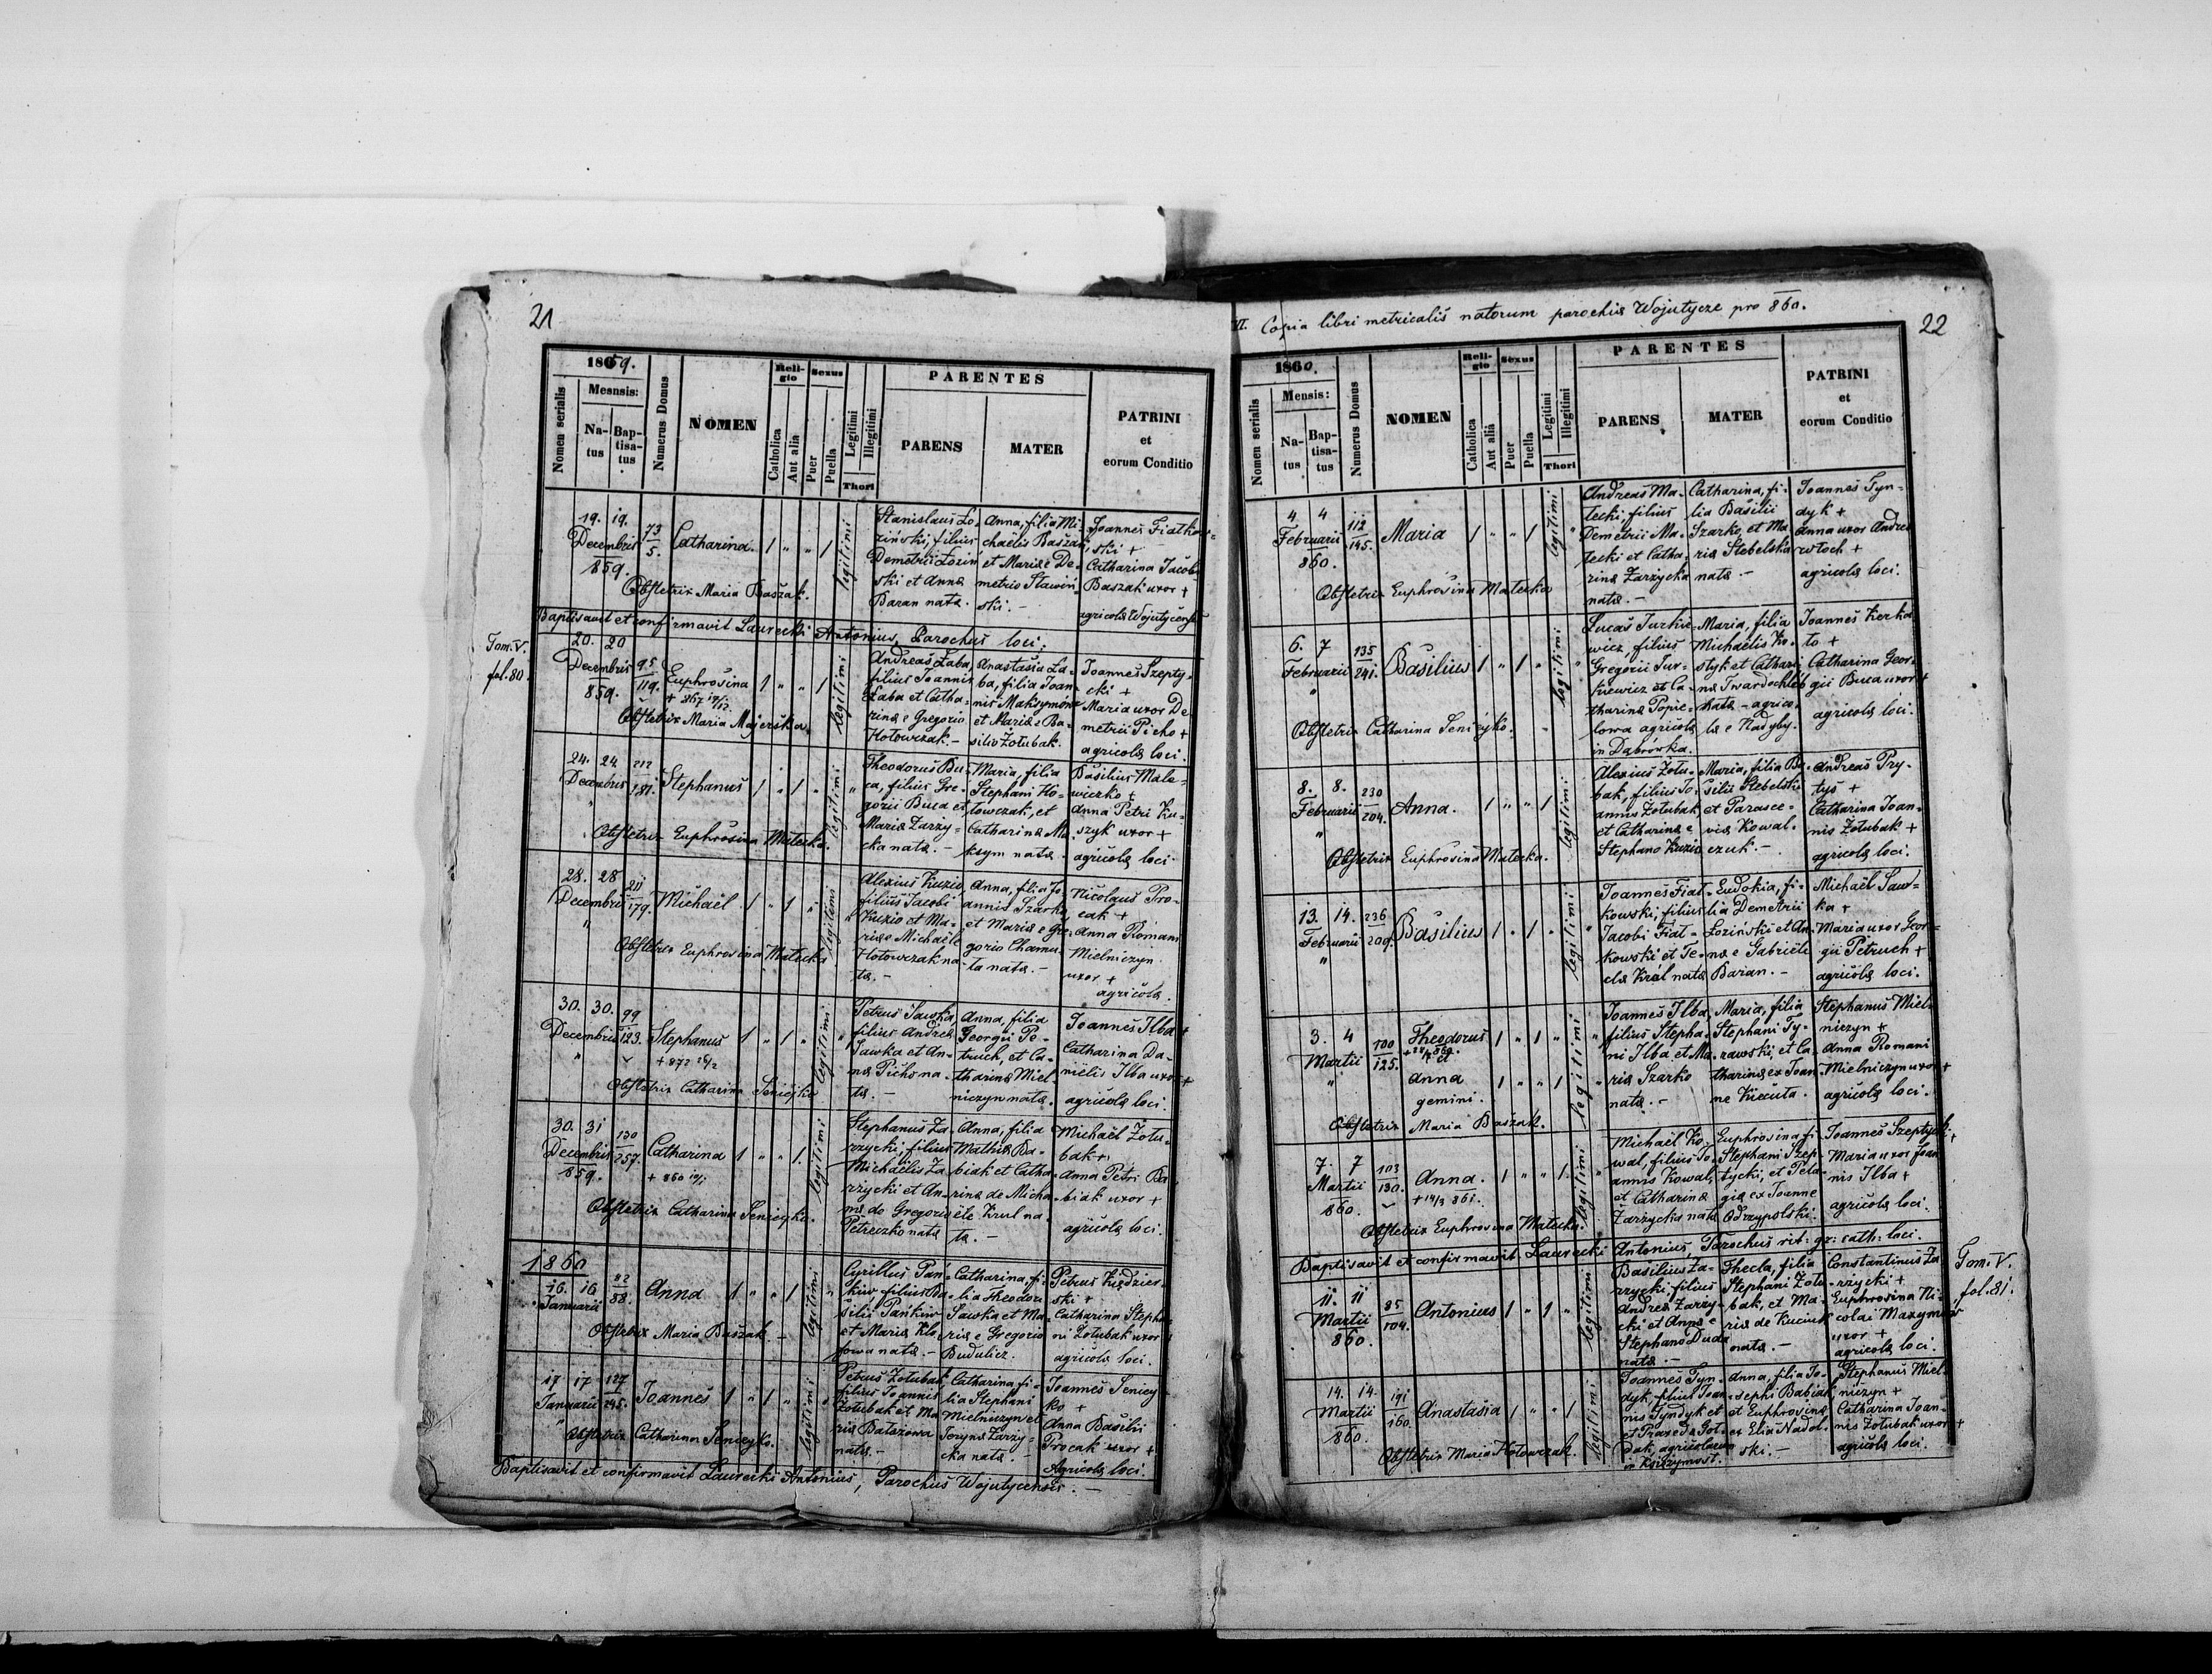 21
1859.
Nomen serialis
Mesnsis:
Na-
tus
Bap-
tisa-
tus
Numerus Domus
NOMEN
Reli-
gio
Catholica
Aut alia
Sexus
Puer
Puella
Legitimi
Illegitimi
Thori
PARENTES
PARENS
MATER
PATRINI
et
eorum Conditio
19. 19.
Decembris
859.
73
5.
Catharina
1 " " 1
legitimi
Stanislaus Lo-
ziński, filius
Demetrii Łoziń
ski et Anna
Baran nata.
Anna, filia Mi-
chaëlis Baszak,
et Mariæ De-
metrio Stawiń
ski. -
Joannes Fiatkow-
ski +
Catharina Jacob
Baszak uxor +
agricolæ Wojutycenses
Obstetrix Maria Baszak.
Baptisavit et confirmavit Laurecki Antonius, Parochus loci.
Tom. V.
fol. 80.
20. 20
Decembris
859.
95
119.
Euphrosina
+ 867 19/12
1 " " 1
legitimi
Andreas Łaba,
filius Joannis
Łaba et Catha-
rinæ Gregorio
Hotowczak. -
Anastasia Ła-
ba, filia Joan-
nis Maksymów
et Mariæ Ba-
silio Żołubak.
Joannes Szepty-
cki +
Maria uxor De
metrii Picho +
agricolæ loci.
Obstetrix Maria Majerska.
24. 24
Decembris
"
212
181.
Stephanus
1 " 1 "
legitimi
Theodorus Bu-
ca, filius Gre-
gorii Buca et
Maria Zarzy-
cka nata. -
Maria, filia
Stephani Ho-
towczak, et
Catharina Ma-
ksym nata.
Basilius Male-
wiczko +
Anna Petri Ku-
szyk uxor +
agricolæ loci.
Obstetrix Euphrosina Matecka.
28. 28
Decembris
"
211
179.
Michaël
1 " 1 "
legitimi
Alexius Kuzio,
filius Jacobi
Kuzio et Ma-
riæ Michaële
Hotowczak na-
ta. -
Anna, filia Jo-
annis Szarko,
et Mariæ Gre-
gorio Chamu-
ta nata. -
Nicolaus Pro-
cak +
Anna Romani
Mielniczyn
uxor +
agricolæ.
Obstetrix Euphrosina Matecka
30. 30.
Decembris
"
99
123.
Stephanus
+ 872 26/2
1 " 1 "
legitimi
Petrus Sawka,
filius Andreæ
Sawka et An-
na Picho na-
ta. -
Anna, filia
Georgii Pe-
truch, et Ca-
tharina Miel-
niczyn nata.
Joannes Ilba +
Catharina Da-
nielis Ilba uxor +
agricolæ loci.
Obstetrix Catharina Senicyko
30. 31
Decembris
859.
130
257.
Catharina
+ 860 10/1
1 " " 1.
legitimi
Stephanus Za-
rzycki, filius
Michaëlis Za-
rzycki et An-
na de Gregorio
Petreczko nata
Anna, filia
Mathiæ Ba-
biak et Catha-
rina de Micha-
ële Krul na-
ta. -
Michaël Żołu-
bak +
Anna Petri Ba
biak uxor +
agricolæ loci.
Obstetrix Catharina Senicyko.
1860
16. 16
Januarii
82
88.
Anna
1 " " 1
legitimi
Cyrillus Pań-
kiw filius Ba-
silii Pańkiw
et Maria Klo-
fowa nata. -
Catharina, fi-
lia Theodori
Sawka et Ma-
riæ Gregorio
Budulicz.
Petrus Kiędzier-
ski +
Catharina Stepha-
ni Żołubak uxor
agricolæ loci.
Obstetrix Maria Baszak -
17 17
Januarii
"
127
245.
Joannes
1 " 1 "
legitimi
Petrus Żołubak
filius Joannis
Żołubak et Ma
ria Batazowa
nata. -
Catharina fi-
lia Stephani
Mielniczyn et
Zarzy-
cka nata. -
Joannes Senicy
ko +
Anna Basilii
Procak uxor +
Agricolæ loci.
Obstetrix Catharina Senicyko.
Baptisavit et confirmavit Laurecki Antonius, Parochus Wojutycensis. -
VI. Copia libri metricalis natorum parochiæ Wojutycze pro 860.
22
1860.
Nomen serialis
Mensis:
Na-
tus
Bap-
tisa-
tus
Numerus Domus
NOMEN
Reli-
gio
Catholica
Aut alia
Sexus
Puer
Puella
Legitimi
Illegitimi
Thori
PARENTES
PARENS
MATER
PATRINI
et
eorum Conditio
4 4
Februarii
860.
112
145.
Maria
1 " " 1
legitimi
Andreas Ma-
tecki, filius
Demetrii Ma-
tecki et Catha-
rina Zarzycka
nata. -
Catharina, fi-
lia Basilii
Szarko, et Ma
ria Stebelska
nata. -
Joannes Tyn-
dyk +
Anna uxor Andreæ
Włoch +
agricolæ loci.
Obstetrix Euphrosina Matecka
6. 7
Februarii
"
135
241.
Basilius
1 " 1 "
legitimi
Lucas Turkie-
wicz, filius
Gregorii Tur-
kiewicz et Ca-
tharina Popie-
lowa agricolæ
in Dąbrówka.
Maria, filia
Michaëlis Ko-
styk et Cathari-
na Twardochlib
nata - agrico-
læ e Nadyby.
Joannes Kerka
to +
Catharina Geor-
gii Buca uxor +
agricolæ loci.
Obstetrix Catharina Senicyko. -
8. 8.
Februarii
"
230
204.
Anna.
1 " " 1
legitimi
Alexius Żołu-
bak, filius Jo-
annis Żołubak
et Catharinæ
Stephano Kuzio
Maria, filia Ba-
silii Stebelski
et Parasce-
via Kowal-
czuk. -
Andreas Pry-
tys +
Catharina Joan-
nis Żołubak +
agricolæ loci.
Obstetrix Euphrosina Matecka.
13. 14.
Februarii
"
236
209.
Basilius
1 " 1 "
legitimi
Joannes Fiat-
kowski, filius
Jacobi Fiat-
kowski et Te-
cla Król nata
Eudokia, fi-
lia Demetrii
Łoziński et An-
na e Gabriele
Baran. -
Michaël Saw-
ka +
Maria uxor Geor-
gii Petruch +
agricolæ loci.
3. 4
Martii
"
100
125.
Theodorus
et
Anna
gemini.
1 " 1 "
1 " " 1
legitimi
Joannes Ilba,
filius Stepha-
ni Ilba et Ma-
ria Szarko
nata. -
Maria, filia
Stephani Ty-
rawski, et Ca-
tharina ex Joan-
ne Kiecuta.
Stephanus Miel-
niczyn +
Anna Romani
Mielniczyn uxor +
agricolæ loci.
Obstetrix Maria Baszak.
7. 7
Martii
860.
103
130.
Anna.
+ 14/3 861.
1 " " 1.
legitimi
Michaël Ko-
wal, filius Jo-
annis Kowal,
et Catharina
Zarzycka nata
Euphrosina fi-
Stephani Szep-
tycki, et Pela-
gia ex Joanne
Odrzypolski.
Joannes Szeptycki +
Maria uxor Joan
nis Ilba +
agricolæ loci.
Obstetrix Euphrosina Matecka.
Baptisavit et confirmavit Laurecki Antonius, Parochus rit: gr: cath: loci.
Tom. V.
fol. 81.
11. 11
Martii
860.
85
104.
Antonius
1 " 1 "
legitimi
Basilius Za-
rzycki, filius
Andreæ Zarzy-
cki et Anna e
Stephano Duda
nata. -
Thecla, filia
Stephani Żołu-
bak, et Ma-
ria de Kuciuk
nata. -
Constantinus Za
rzycki +
Euphrosina Ni-
colai Maxymow
uxor +
agricolæ loci.
14. 14.
Martii
860.
191
160.
Anastasia
1 " " 1
legitimi
Joannes Tyn-
dyk, filius Joan-
nis Tyndyk et
et Praxeda Got-
dak, agricolarum
in Księzymost.
Anna, filia Jo-
sephi Babiak,
et Euphrosina
ex Elia Nadol-
ski. -
Stephanus Miel-
niczyn +
Catharina Joan-
nis Żołubak uxor +
agricolæ loci.
Obstetrix Maria Hotowczak.